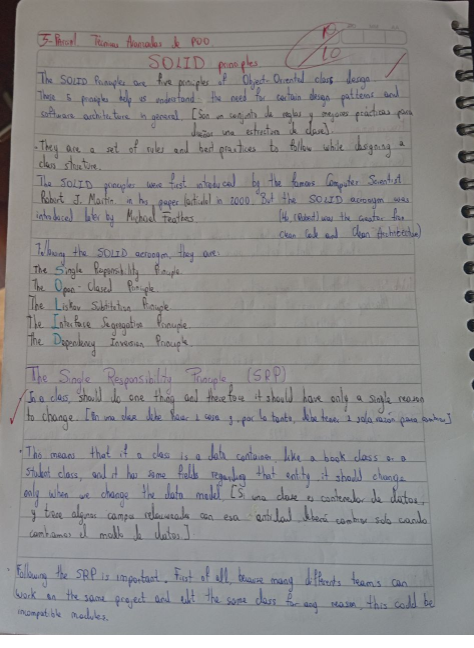 3-Parcial Técnicas Avanzadas de POO
10
10
SOLID principles
The SOLID Principles are five principles of Object-Oriented class design.
These 5 principles help us understand the need for certain design patterns and
software architecture in general. [Son un conjunto de reglas y mejores prácticas para
diseñar una estructura de clase].
• They are a set of rules and best practices to follow while designing a
class structure.
The SOLID principles were first introduced by the famous Computer Scientist
Robert J. Martin in his paper (article) in 2000. But the SOLID acronym was
introduced later by Michael Feathes. (Robert) was the creator for
Clean Code and Clean Architecture)
Following the SOLID acronym, they are:
The Single Responsibility Principle.
The Open-Closed Principle.
The Liskov Substitution Principle
The Interface Segregation Principle
The Dependency Inversion Principle.
The Single Responsibility Principle (SRP)
In a class, should do one thing and therefore it should have only a single reason
to change. [En una clase debe hacer 1 cosa y, por lo tanto, debe tener 1 sola razón para cambiar]
• This means that if a class is a data container, like a book class or a
student class, and it has some fields regarding that entity, it should change
only when we change the data model. [Si una clase es contenedor de datos,
y tiene algunos campos relacionados con esa entidad deberá cambiar solo cuando
cambiamos el modelo de datos]
• Following the SRP is important. First of all, because many differents teams can
work on the same project and edit the same class for any reason, this could be
incompatible modules.